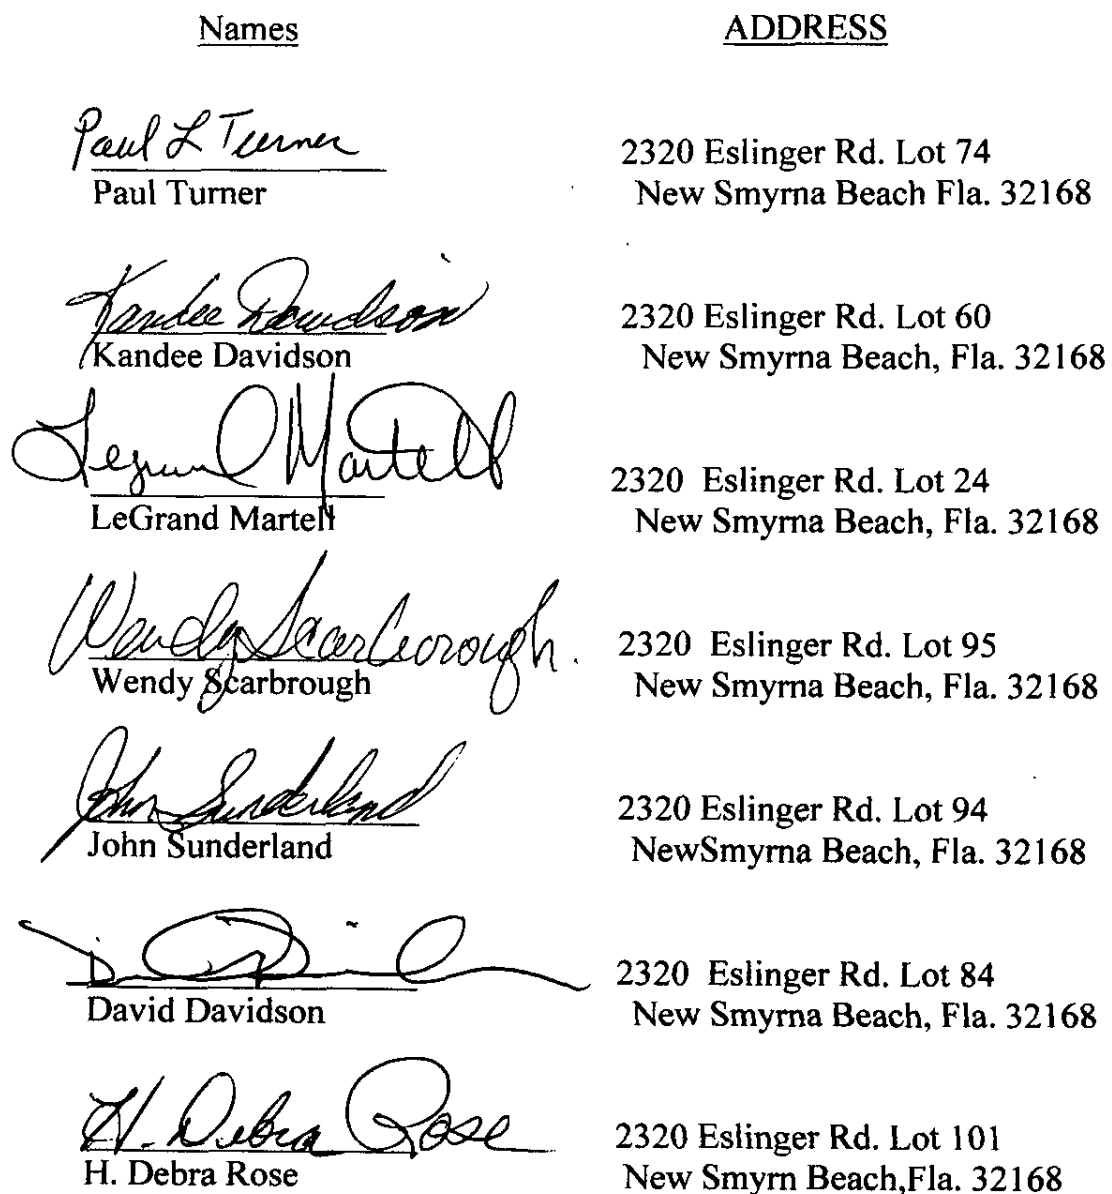 Names ADDRESS
Paul L Turner
Paul Turner 2320 Eslinger Rd. Lot 74
New Smyrna Beach Fla. 32168
Kandee Davidson
Kandee Davidson 2320 Eslinger Rd. Lot 60
New Smyrna Beach, Fla. 32168
Legrand Martell
LeGrand Martell 2320 Eslinger Rd. Lot 24
New Smyrna Beach, Fla. 32168
Wendy Scarborough.
Wendy Scarbrough 2320 Eslinger Rd. Lot 95
New Smyrna Beach, Fla. 32168
John Sunderland
John Sunderland 2320 Eslinger Rd. Lot 94
NewSmyrna Beach, Fla. 32168
David Davidson 2320 Eslinger Rd. Lot 84
New Smyrna Beach, Fla. 32168
H. Debra Rose
H. Debra Rose 2320 Eslinger Rd. Lot 101
New Smyrn Beach,Fla. 32168